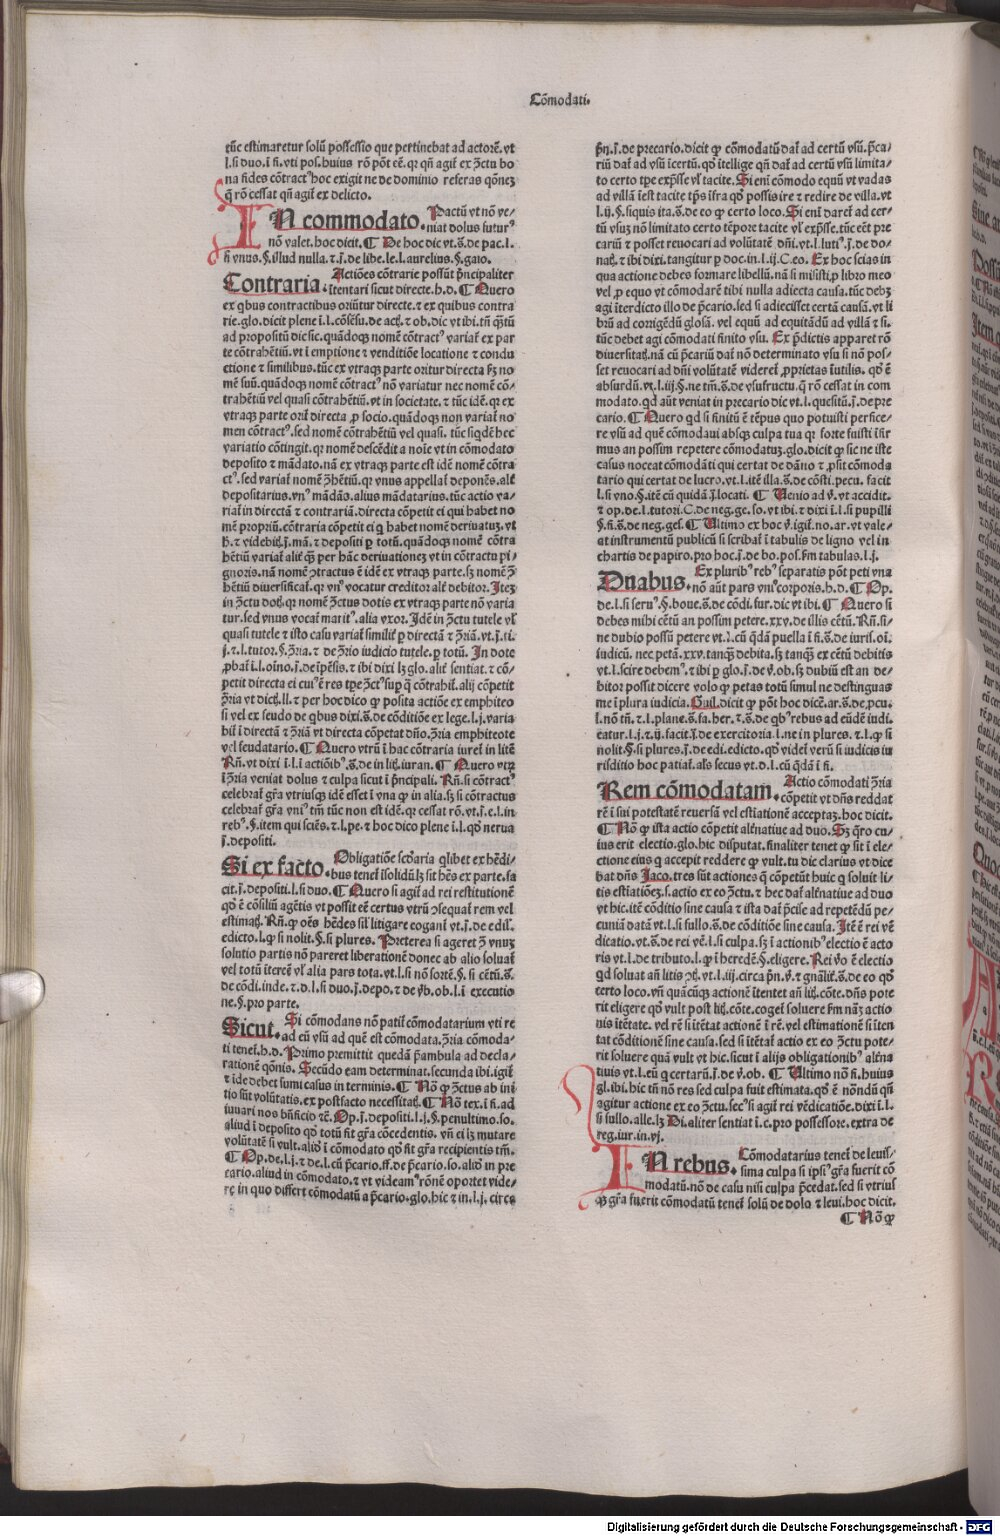 Cōmodati.
tūc estimaretur solū possessio que pertinebat ad actorē.vt
l.si duo.ī fi.vti pos.huius rō pōt eē.qꝛ qñ agiť ex ɔctu bo
na fides cōtract⁹ hoc exigit ne de dominio referas qōneꝫ
q̄ rō cessat qñ agiť ex delicto.
IN commodato. Pactū vt nō ve-
niat dolus futur⁹
nō valet.hoc dicit. ¶ De hoc dic vt.s̄.de pac.l.
si vnus.§.illud nulla.⁊.j̄.de libe.le.l.aurelius.§.gaio.
Contraria. Actiōes cōtrarie possūt p̄ncipaliter
ītentari sicut directe.h.d. ¶ Quero
ex qbus contractibus oriūtur directe.⁊ ex quibus contra
rie.glo.dicit plene ī.l.cōsēsu.de acť.⁊ ob.dic vt ibi.tñ q̄stū
ad propositū dic sic.quādoqꝫ nomē cōtract⁹ variať ex par
te cōtrahētiū.vt ī emptione ⁊ venditiōe locatione ⁊ condu
ctione ⁊ similibus.tūc ex vtraqꝫ parte oritur directa fꝫ no
mē suū.quādoqꝫ nomē cōtract⁹ nō variatur nec nomē cō-
trahētiū vel quasi cōtrahētiū.vt in societate.⁊ tūc idē.qꝛ ex
vtraqꝫ parte oriť directa ꝓ socio.quādoqꝫ non variať no
men cōtract⁹.sed nomē cōtrahētiū vel quasi. tūc siqdē hec
variatio cōtingit.qꝛ nomē descēdit a noīe vt in cōmodato
deposito ⁊ mādato.nā ex vtraqꝫ parte est idē nomē cōtra
ct⁹.sed variať nomē ɔhētiū.qꝛ vnus appellať deponēs.alť
depositarius.vn⁹ mādās.alius mādatarius.tūc actio va-
riať in directā ⁊ contrariā.directa cōpetit ei qui habet no
mē propriū.cōtraria cōpetit ei q habet nomē deriuatuꝫ.vt
h̄.⁊ videbiť.j̄.mā.⁊ depositi ꝑ totū.quādoqꝫ nomē cōtra
hētiū variať aliť ꝙ per hāc deriuationeꝫ vt in contractu pi-
gnoris.nā nomē ɔtractus ē idē ex vtraqꝫ parte.sꝫ nomē ɔ
hētiū diuersificať.qꝛ vn⁹ vocatur creditor alť debitor. Iteꝫ
in ɔctu dotꝭ.qꝛ nomē ɔctus dotis ex vtraqꝫ parte nō varia
tur.sed vnus vocať marit⁹.alia vxor. Idē in ɔctu tutele vľ
quasi tutele ⁊ isto casu variať similiť ꝑ directā ⁊ ɔriā.vt.j̄.ti.
j.⁊.l.tutor.§.ɔria.⁊ de ɔrio iudicio tutele.ꝑ totū. In dote
ꝓbať ī.l.oīno.j̄.de īpēsis.⁊ ibi dixi lꝫ glo.aliť sentiat.⁊ cō-
petit directa ei cui⁹ ē res tꝑe ɔct⁹ sup q̄ cōtrahiť.alij cōpetit
ɔria vt dictꝭ.ll.⁊ per hoc dico ꝙ posita actiōe ex emphiteo
si vel ex feudo de qbus dixi.s̄.de cōditiōe ex lege.l.j.varia
biť ī directā ⁊ ɔriā vt directa cōpetat dño.ɔria emphiteote
vel feudatario. ¶ Quero vtrū ī hac cōtraria iureť in litē
Rñ.vt dixi ī.l.ī actiōib⁹.s̄.de in litꝭ.iuran. ¶ Quero vtꝝ
ī ɔria veniat dolus ⁊ culpa sicut ī p̄ncipali. Rñ.si cōtract⁹
celebrať gr̄a vtriusqꝫ idē esset ī vna ꝙ in alia.sꝫ si cōtractus
celebrať gr̄a vni⁹ tm̄ tūc non est idē.qꝛ cessat rō.vt.j̄.e.l.in
reb⁹.§.item qui sciēs.⁊.l.pe.⁊ hoc dico plene ī.l.qō nerua
j̄.depositi.
Si ex facto. Obligatiōe scōaria qlibet ex hēdi-
bus teneť īsolidū lꝫ sit hēs ex parte.fa
cit.j̄.depositi.l.si duo. ¶ Quero si agiť ad rei restitutionē
qō ē cōsiliū agētis vt possit eē certus vtrū ɔsequať rem vel
estimatꝭ. Rñ.ꝙ oēs hēdes siľ litigare coganť vt.j̄.de edil.
edicto.l.ꝙ si nolit.§.si plures. Preterea si ageret ɔ vnuꝫ
solutio partis nō pareret liberationē donec ab alio soluať
vel totū īterēē vľ alia pars tota.vt.l.si nō sortē.§.si cētū.s̄.
de cōdi.inde.⁊.d.l.si duo.j̄.depo.⁊ de v̄b.ob.l.ī executio
ne.§.pro parte.
Sicut. Si cōmodans nō patiť cōmodatarium vti re
ad eū vsū ad quē est cōmodata.ɔria cōmoda-
ti teneť.h.d. Primo premittit quedā p̄ambula ad decla-
rationē qōnis. Secūdo eam determinat.secunda ibi.igiť
⁊ īde debet sumi casus in terminis. ¶ Nō ꝙ ɔctus ab ini
tio sūt volūtatis.ex postfacto necessitatꝭ. ¶ Nō tex.ī fi.ad
iuuari nos bñficio ⁊ē. Op.j̄.depositi.l.j.§.penultimo.so.
aliud ī deposito qō totū fit gr̄a cōcedentis. vñ ei lꝫ mutare
volūtatē si vult.aliō ī cōmodato qō fit gr̄a recipientis tm̄.
¶ Op.de.l.j.⁊ de.l.cū p̄cario.ff.de p̄cario.so.aliō in pre
cario.aliud in cōmodato.⁊ vt videam⁹ rōnē oportet vide-
re in quo differt cōmodatū a p̄cario.glo.hic ⁊ in.l.j. circa
p̄n.j̄.de precario.dicit ꝙ cōmodatū daī ad certū vsū.p̄ca-
riū daī ad vsū īcertū.qō ītellige qñ daī ad certū vsū limita-
to certo tꝑe exp̄sse vľ tacite. Si enī cōmodo equū vt vadas
ad villā īest tacite tp̄s īfra qō possis ire ⁊ redire de villa.vt
l.ij.§.siquis ita.s̄.de eo ꝙ certo loco. Si enī dareť ad cer-
tū vsuꝫ nō limitato certo tēpore tacite vľ exp̄sse.tūc eēt pre
cariū ⁊ posset reuocari ad volūtatē dñi.vt.l.luti⁹.j̄.de do-
natꝭ.⁊ ibi dixi.tangitur p doc.in.l.ij.C.eo. Ex hoc scias in
qua actione debes formare libellū.nā si misisti.p libro meo
vel ꝓ equo vt cōmodarē tibi nulla adiecta causa.tūc debꝫ
agi īterdicto illo de p̄cario.sed si adiecisset certā causā.vt li
brū ad corrigēdū glosā. vel equū ad equitādū ad villā ⁊ si.
tūc debet agi cōmodati finito vsu. Ex p̄dictis apparet rō
diuersitatꝭ.nā cū p̄cariū daī nō determinato vsu si nō pos-
set reuocari ad dñi volūtatē videreť ꝓprietas īutilis. qō ē
absurdū.vt.l.iij.§.ne tm̄.s̄.de vsufructu.q̄ rō cessat in com
modato.qd aūt veniat in precario dic vt.l.quesitū.j̄.de pre
cario. ¶ Quero qd si finitū ē tēpus quo potuisti perfice-
re vsū ad quē cōmodaui absqꝫ culpa tua qꝛ forte fuisti īfir
mus an possim repetere cōmodatuꝫ.glo.dicit ꝙ sic ne iste
casus noceat cōmodāti qui certat de dāno ⁊ ꝓsit cōmoda
tario qui certat de lucro.vt.l.itē illa.s̄.de cōsti.pecu. facit
l.si vno.§.itē cū quidā j̄.locati. ¶ Uenio ad v̄.vt accidit.
⁊ op.de.l.tutori.C.de neg.ge.so.vt ibi.⁊ dixi ī.l.si pupilli
§.fi.s̄.de neg.ges. ¶ Ultimo ex hoc v̄.igiť.no.ar.vt vale-
at instrumentū publicū si scribať ī tabulis de ligno vel in
chartis de papiro.pro hoc.j̄.de bo.pos.fm tabulas.l.j.
Duabus. Ex plurib⁹ reb⁹ separatis pōt peti vna
nō aūt pars vni⁹ corporis.h.d. ¶ Op.
de.l.si seru⁹.§.boue.s̄.de cōdi.fur.dic vt ibi. ¶ Quero si
debes mihi cētū an possim petere.xxv.de illis cētū. Rñ.si-
ne dubio possū petere vt.l.cū q̄dā puella ī fi.s̄.de iuris.oī.
iudicū.nec petā.xxv.tanqꝫ debita.sꝫ tanqꝫ ex cētū debitis
vt.l.scire debem⁹.⁊ ibi p glo.j̄.de v̄.ob.sꝫ dubiū est an de-
bitor possit dicere volo ꝙ petas totū simul ne destinguas
me ī plura iudicia. Guil.dicit ꝙ pōt hoc dicē.ar.s̄.de ꝓcu.
l.nō tm̄.⁊.l.plane.s̄.fa.her.⁊.s̄.de qb⁹ rebus ad eūdē iudi.
eatur.l.j.⁊.ij.facit.j̄.de exercitoria.l.ne in plures. ⁊.l.ꝙ si
nolit.§.si plures.j̄.de edi.edicto.qō videť verū si iudicis iu
risdictio hoc patiať.als secus vt.d.l.cū q̄dā ī fi.
Rem cōmodatam. Actio cōmodati ɔria
cōpetit vt dñs reddat
rē ī sui potestatē reuersā vel estiationē acceptaꝫ.hoc dicit.
¶ Nō ꝙ ista actio cōpetit alťnatiue ad duo. Sꝫ qro cu-
ius erit electio.glo.hic disputat.finaliter tenet ꝙ sit ī ele-
ctione eius q accepit reddere ꝙ vult.tu dic clarius vt dice
bat dñs Jaco.tres sūt actiones q̄ cōpetūt huic q soluit li-
tis estiatiōeꝫ.s.actio ex eo ɔctu.⁊ hec daī alťnatiue ad duo
vt hic.itē cōditio sine causa ⁊ ista daī p̄cise ad repetēdū pe-
cuniā datā vt.l.si fullo.s̄.de cōditiōe sine causa. Itē ē rei vē
dicatio.vt.s̄.de rei vē.l.si culpa.sꝫ ī actionib⁹ electio ē acto
ris vt.l.de tributo.l.ꝙ ī heredē.§.eligere. Rei v̄o ē electio
qd soluat añ litis ɔtꝭ.vt.l.iij.circa p̄n.v̄.⁊ gñaliť.s̄.de eo qō
certo loco.vñ quācūqꝫ actionē ītentet añ litꝭ.cōte. dñs pote
rit eligere qō vult post litꝭ.cōte.cogeť soluere fm nāꝫ actio
nis ītētate. vel rē si ītētat actionē ī rē.vel estimationē si īten
tat cōditionē sine causa.sed si ītētať actio ex eo ɔctu pote-
rit soluere quā vult vt hic.sicut ī alijs obligationib⁹ alťna
tiuis vt.l.eū q certarū.j̄.de v̄.ob. ¶ Ultimo nō fi.huius
gl.ibi.hic tñ nō res sed culpa fuit estimata.qō ē nōndū qñ
agitur actione ex eo ɔctu.sec⁹ si agiť rei vēdicatiōe.dixi ī.l.
si fullo.alle.lꝫ Di.aliter sentiat ī.c.pro possessore.extra de
reg.iur.in.vj.
IN rebus. Cōmodatarius teneť de leuis-
sima culpa si ipsi⁹ gr̄a fuerit cō
modatū.nō de casu nisi culpa p̄cedat.sed si vtrius
qꝫ gr̄a fuerit cōmodatū teneť solū de dolo ⁊ leui.hoc dicit.
¶ Nō ꝙ
Digitalisierung gefördert durch die Deutsche Forschungsgemeinschaft - DFG